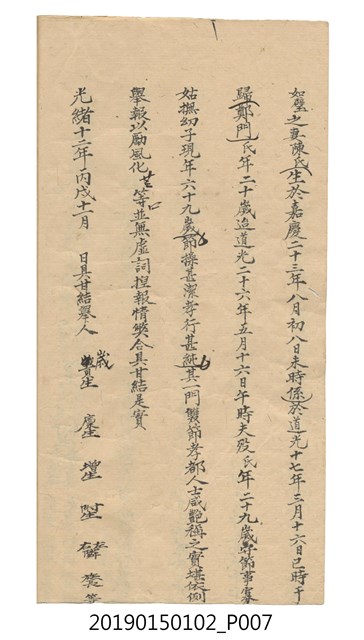 如璧之妻陳氏生於嘉慶二十三年八月初八日未時係於道光十七年三月十六日巳時于
歸鄭門氏年二十歲迨道光二十六年五月十六日午時夫歿氏年二十九歲守節事寡
姑撫幼子現年六十九歲節操甚潔孝行甚純其一門雙節孝都人士咸艷稱之實堪依例
舉報以勵風化 等並無虛詞捏報情弊合具甘結是實
光緒十二年丙戌十一月 日具甘結舉人
歲 生 廩生 增生 附生
20190150102_P007